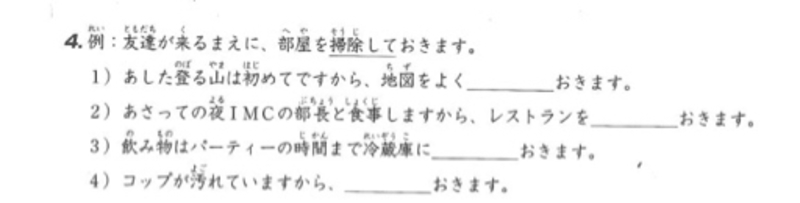 4. 例：友達が来るまえに、部屋を掃除しておきます。
1）あした登る山は初めてですから、地図をよく＿＿＿＿おきます。
2）あさっての夜IMCの部長と食事しますから、レストランを＿＿＿＿おきます。
3）飲み物はパーティーの時間まで冷蔵庫に＿＿＿＿おきます。
4）コップが汚れていますから、＿＿＿＿おきます。